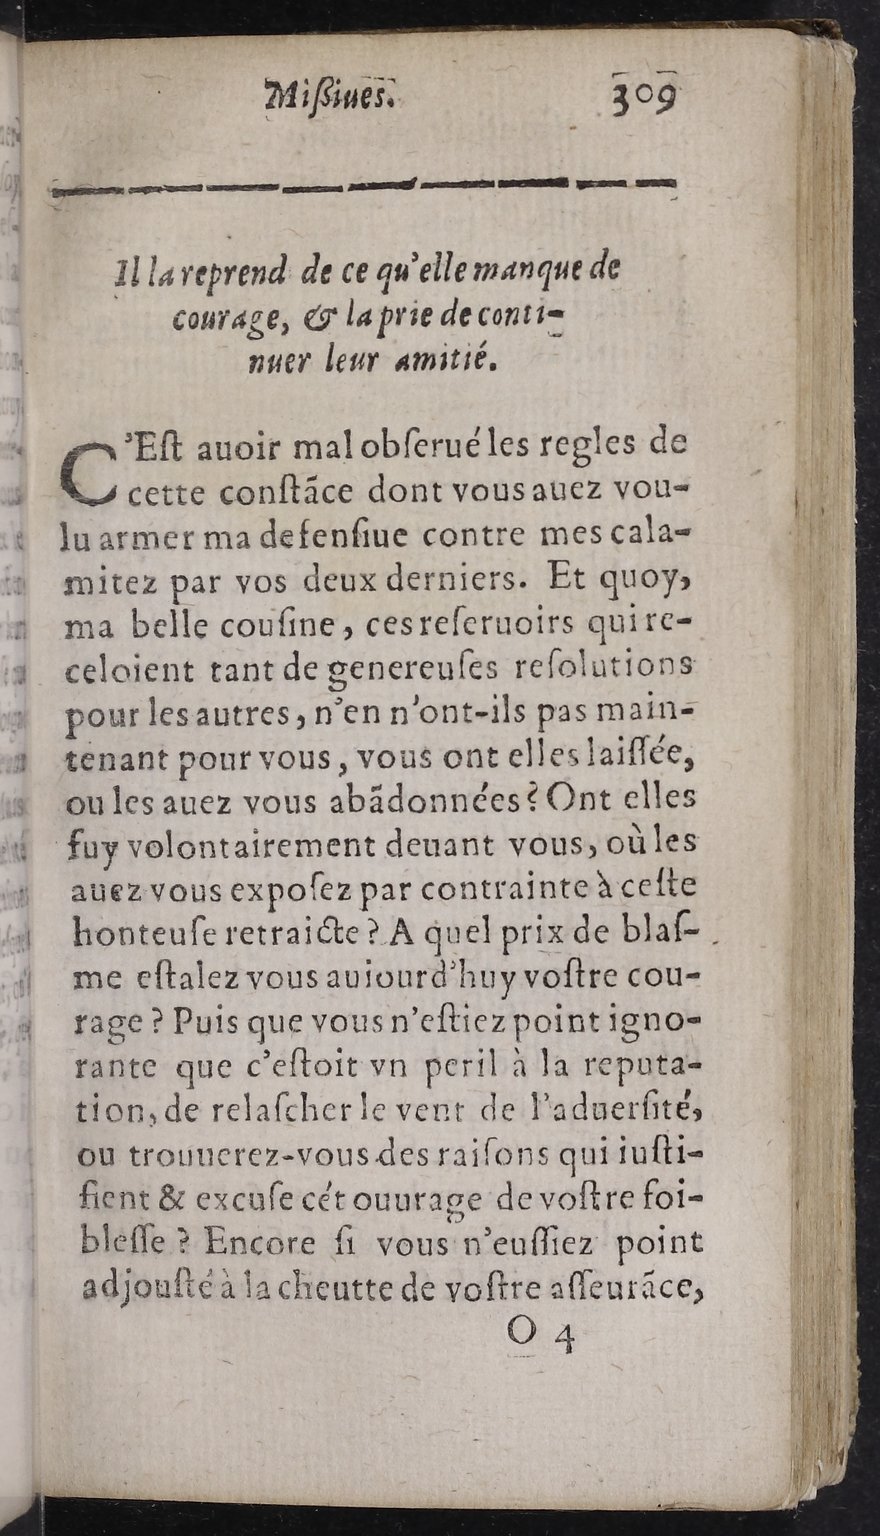 Miſſiues. 309
Il la reprend de ce qu'elle manque de
courage, & la prie de conti-
nuer leur amitié.
C'Eſt auoir mal obſerué les regles de
cette conſtãce dont vous auez vou-
lu armer ma defenſiue contre mes cala-
mitez par vos deux derniers. Et quoy,
ma belle couſine, ces reſeruoirs qui re-
celoient tant de genereuſes reſolutions
pour les autres, n'en n'ont-ils pas main-
tenant pour vous, vous ont elles laiſſée,
ou les auez vous abãdonnées? Ont elles
fuy volontairement deuant vous, où les
auez vous expoſez par contrainte à ceſte
honteuſe retraicte? A quel prix de blaſ-
me eſtalez vous auiourd'huy voſtre cou-
rage? Puis que vous n'eſtiez point igno-
rante que c'eſtoit vn peril à la reputa-
tion, de relaſcher le vent de l'aduerſité,
ou trouuerez-vous des raiſons qui iuſti-
fient & excuſe cét ouurage de voſtre foi-
bleſſe? Encore ſi vous n'euſſiez point
adjouſté à la cheutte de voſtre aſſeurãce,
O 4